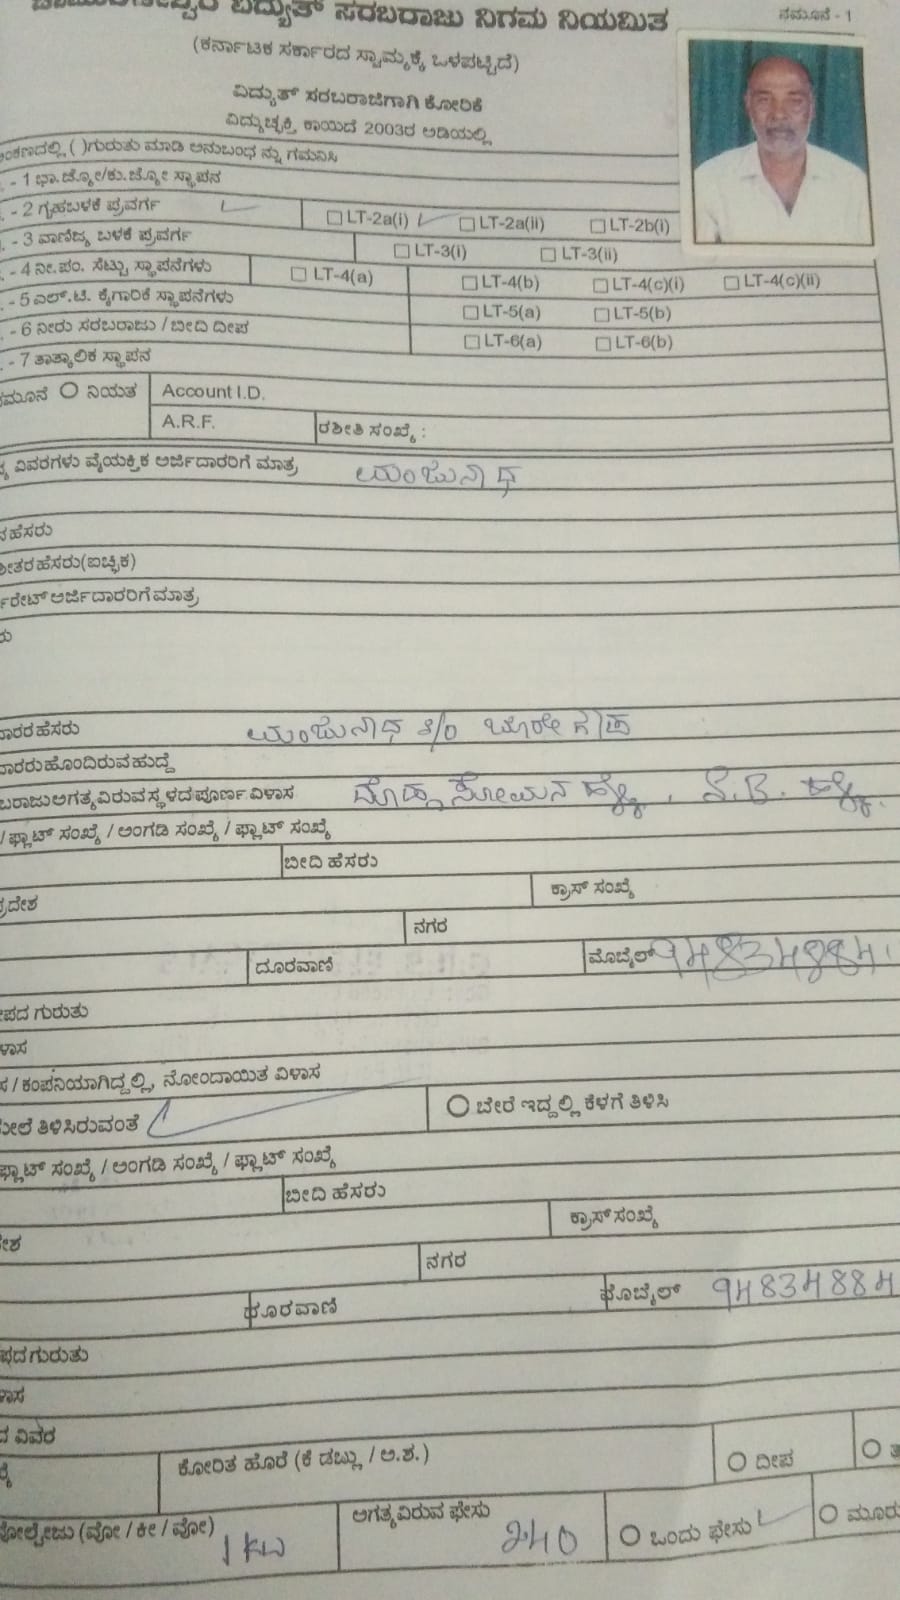 ವಿದ್ಯುತ್ ಸರಬರಾಜು ನಿಗಮ ನಿಯಮಿತ
ನಮೂನೆ - 1
(ಕರ್ನಾಟಕ ಸರ್ಕಾರದ ಸ್ವಾಮ್ಯಕ್ಕೆ ಒಳಪಟ್ಟಿದೆ)
ವಿದ್ಯುತ್ ಸರಬರಾಜಿಗಾಗಿ ಕೋರಿಕೆ
ವಿದ್ಯುಚ್ಛಕ್ತಿ ಕಾಯಿದೆ 2003ರ ಅಡಿಯಲ್ಲಿ
ಅಂಕಣದಲ್ಲಿ ( )ಗುರುತು ಮಾಡಿ ಅನುಬಂಧ ನ್ನು ಗಮನಿಸಿ
- 1 ಭಾ.ಜ್ಯೋ/ಕು.ಜ್ಯೋ ಸ್ಥಾಪನ
- 2 ಗೃಹಬಳಕೆ ಪ್ರವರ್ಗ LT-2a(i) LT-2a(ii) LT-2b(i)
- 3 ವಾಣಿಜ್ಯ ಬಳಕೆ ಪ್ರವರ್ಗ LT-3(i) LT-3(ii)
- 4 ನೀ.ಪಂ. ಸೆಟ್ಟು ಸ್ಥಾಪನೆಗಳು LT-4(a) LT-4(b) LT-4(c)(i) LT-4(c)(ii)
- 5 ಎಲ್.ಟಿ. ಕೈಗಾರಿಕೆ ಸ್ಥಾಪನೆಗಳು LT-5(a) LT-5(b)
- 6 ನೀರು ಸರಬರಾಜು / ಬೀದಿ ದೀಪ LT-6(a) LT-6(b)
- 7 ತಾತ್ಕಾಲಿಕ ಸ್ಥಾಪನ
ನಮೂನೆ ನಿಯತ Account I.D.
A.R.F. ರಶೀತಿ ಸಂಖ್ಯೆ :
ವಿವರಗಳು ವೈಯಕ್ತಿಕ ಅರ್ಜಿದಾರರಿಗೆ ಮಾತ್ರ ಮಂಜುನಾಥ
ಹೆಸರು
ಹೆಸರು(ಐಚ್ಛಿಕ)
ಅರ್ಜಿದಾರರಿಗೆ ಮಾತ್ರ
ದಾರರ ಹೆಸರು ಮಂಜುನಾಥ S/O ಬೋರೇಗೌಡ
ದಾರರು ಹೊಂದಿರುವ ಹುದ್ದೆ
ಸರಬರಾಜು ಅಗತ್ಯವಿರುವ ಸ್ಥಳದ ಪೂರ್ಣ ವಿಳಾಸ ದೊಡ್ಡ ಸೋಮನ ಹಳ್ಳಿ
/ ಫ್ಲಾಟ್ ಸಂಖ್ಯೆ / ಅಂಗಡಿ ಸಂಖ್ಯೆ / ಫ್ಲಾಟ್ ಸಂಖ್ಯೆ
ಬೀದಿ ಹೆಸರು
ಪ್ರದೇಶ ಕ್ರಾಸ್ ಸಂಖ್ಯೆ
ನಗರ
ದೂರವಾಣಿ ಮೊಬೈಲ್ 948348841
ಗುರುತು
/ ಕಂಪನಿಯಾಗಿದ್ದಲ್ಲಿ, ನೋಂದಾಯಿತ ವಿಳಾಸ
ಮೇಲೆ ತಿಳಿಸಿರುವಂತೆ ಬೇರೆ ಇದ್ದಲ್ಲಿ ಕೆಳಗೆ ತಿಳಿಸಿ
ಫ್ಲಾಟ್ ಸಂಖ್ಯೆ / ಅಂಗಡಿ ಸಂಖ್ಯೆ / ಫ್ಲಾಟ್ ಸಂಖ್ಯೆ
ಬೀದಿ ಹೆಸರು
ಕ್ರಾಸ್ ಸಂಖ್ಯೆ
ನಗರ
ದೂರವಾಣಿ ಮೊಬೈಲ್ 94834884
ಗುರುತು
ವಿವರ
ಕೋರಿತ ಹೊರೆ (ಕೆ ಡಬ್ಲ್ಯು / ಅ.ಶ.) ದೀಪ
ವೋಲ್ಟೇಜು (ವೋ / ಕೀ / ವೋ) 1 KW ಅಗತ್ಯವಿರುವ ಫೇಸು 240 ಒಂದು ಫೇಸು ಮೂರು